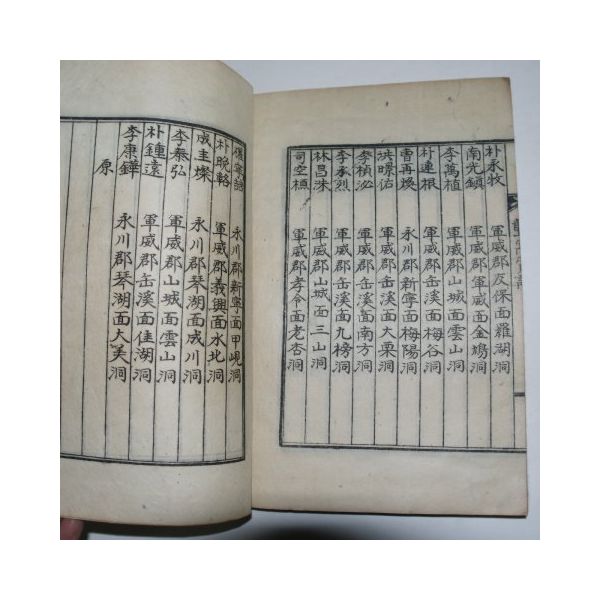 朴永牧 軍威郡友保面羅湖洞
南光鎭 軍威郡軍威面金鳩洞
李萬植 軍威郡山城面雲山洞
朴連根 軍威郡缶溪面梅谷洞
曹再煥 永川郡新寧面梅陽洞
洪暻佑 軍威郡缶溪面大栗洞
李楨泌 軍威郡缶溪面南方洞
李承烈 軍威郡缶溪面九榜洞
林昌洙 軍威郡山城面三山洞
司空楨 軍威郡孝令面老杏洞
永川郡新寧面甲峴洞
朴晚輅 軍威郡義興面水北洞
成圭燦 永川郡琴湖面成川洞
李泰弘 軍威郡山城面雲山洞
朴鍾遠 軍威郡缶溪面佳湖洞
李康鏵 永川郡琴湖面大美洞
原